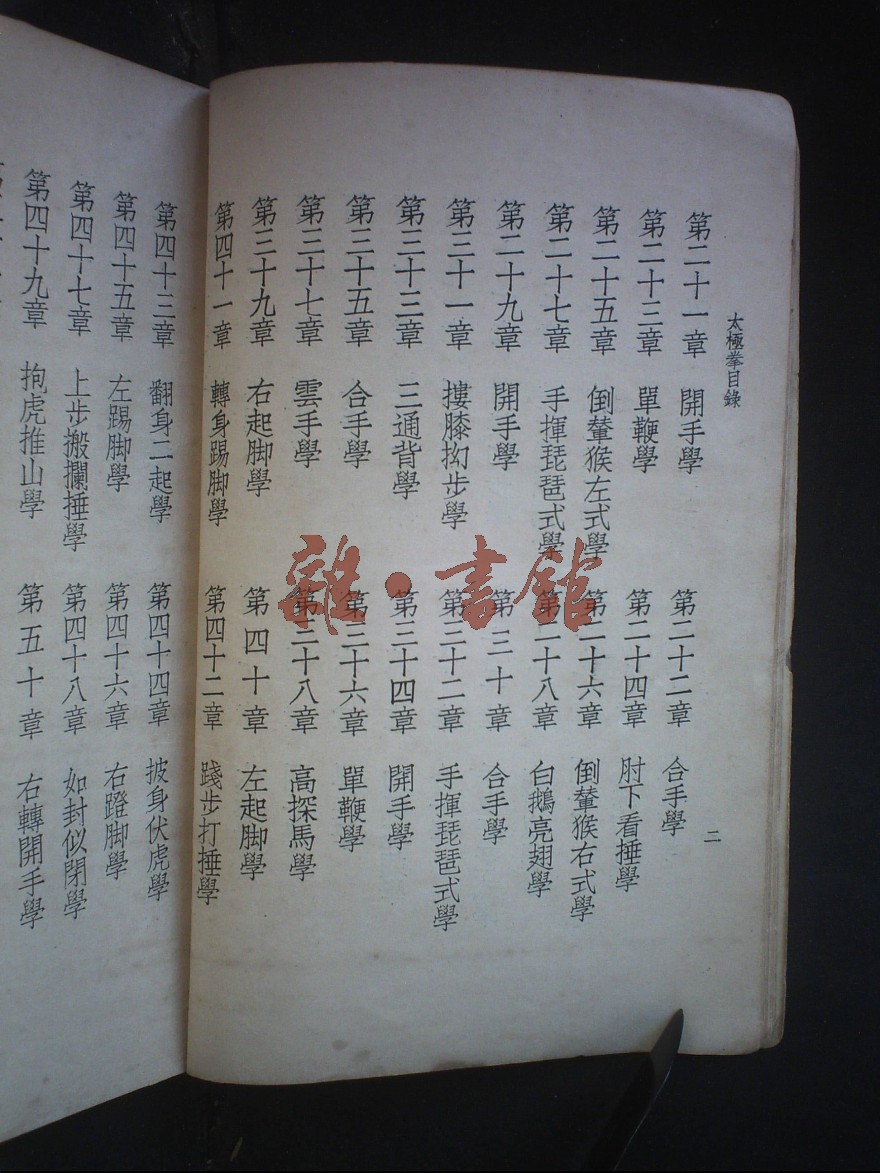 太極拳目錄
二
第二十一章 開手學 第二十二章 合手學
第二十三章 單鞭學 第二十四章 肘下看捶學
第二十五章 倒輦猴左式學 第二十六章 倒輦猴右式學
第二十七章 手揮琵琶式學 第二十八章 白鵝亮翅學
第二十九章 開手學 第三十章 合手學
第三十一章 摟膝拗步學 第三十二章 手揮琵琶式學
第三十三章 三通背學 第三十四章 開手學
第三十五章 合手學 第三十六章 單鞭學
第三十七章 雲手學 第三十八章 高探馬學
第三十九章 右起脚學 第四十章 左起脚學
第四十一章 轉身踢脚學 第四十二章 踐步打捶學
第四十三章 翻身二起學 第四十四章 披身伏虎學
第四十五章 左踢脚學 第四十六章 右蹬脚學
第四十七章 上步搬攔捶學 第四十八章 如封似閉學
第四十九章 抱虎推山學 第五十章 右轉開手學
雜·書館